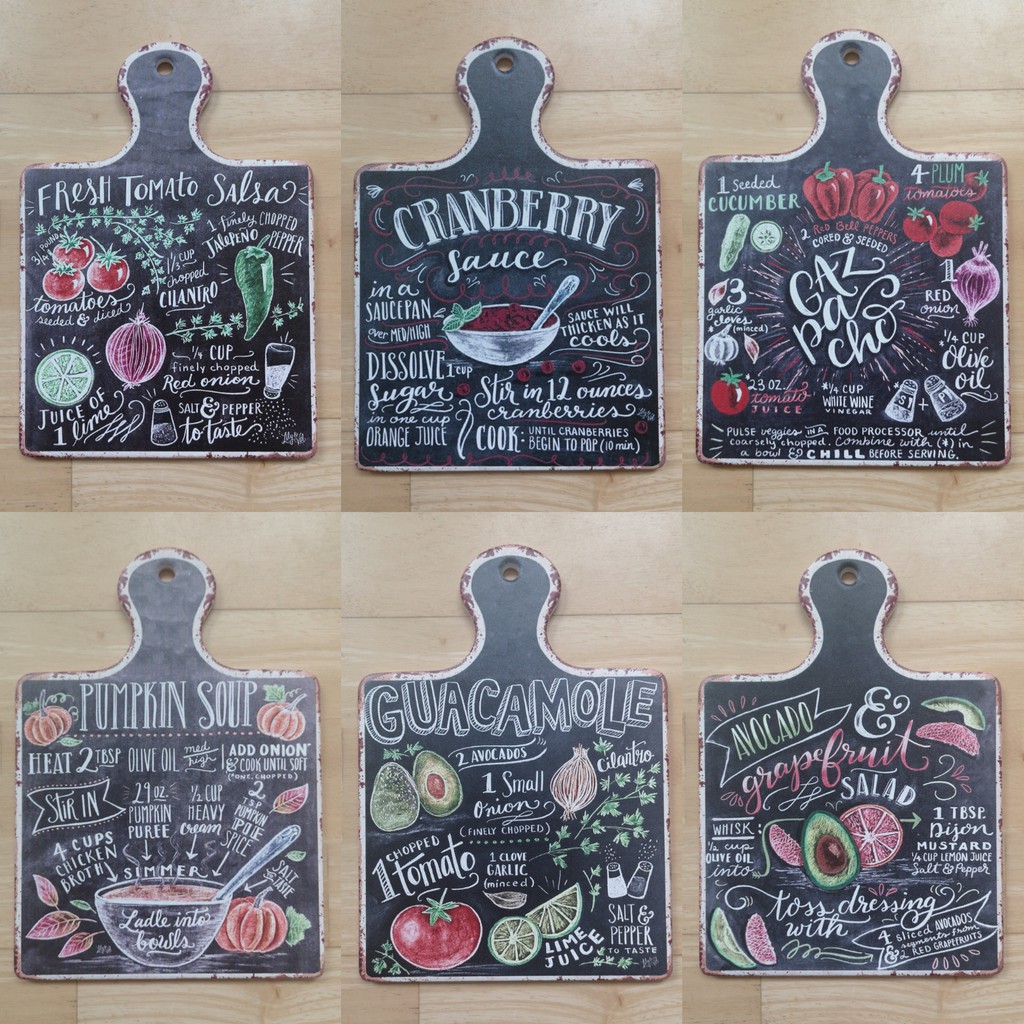 FRESH TOMATO SALSA
3/4 POUND
tomatoes
seeded & diced
1/3 CUP
chopped
CILANTRO
1 finely CHOPPED
JALAPEÑO PEPPER
1/4 CUP
finely chopped
Red onion
JUICE OF
1 lime
SALT & PEPPER
to taste
CRANBERRY
Sauce
in a
SAUCEPAN
over MED/HIGH
DISSOLVE 1 CUP
Sugar
in one cup
ORANGE JUICE
SAUCE WILL
THICKEN AS IT
cools
Stir in 12 ounces
cranberries
COOK - UNTIL CRANBERRIES
BEGIN TO POP (10 min)
1 Seeded
CUCUMBER
2 Red Bell PEPPERS
CORED & SEEDED
4 PLUM
tomatoes
GAZ
pa
cho
3
garlic
cloves
(minced)
1
RED
onion
*23 OZ.
tomato
JUICE
*1/4 CUP
WHITE WINE
VINEGAR
*1/4 CUP
Olive
oil
* S + P
PULSE veggies IN A FOOD PROCESSOR until
coarsely chopped. Combine with (*) in
a bowl & CHILL BEFORE SERVING.
PUMPKIN SOUP
HEAT 2 TBSP OLIVE OIL med high
ADD ONION*
& COOK UNTIL SOFT
(*ONE, CHOPPED)
STIR IN
4 CUPS
CHICKEN
BROTH
29 oz.
PUMPKIN
PUREE
1/2 CUP
HEAVY
cream
2
TSP
PUMPKIN
PIE
SPICE
SALT
to TASTE
SIMMER
Ladle into
bowls
GUACAMOLE
2 AVOCADOS
1 Small
Onion
(FINELY CHOPPED)
cilantro
1 CHOPPED
tomato
1 CLOVE
GARLIC
(minced)
LIME
JUICE
SALT &
PEPPER
TO TASTE
AVOCADO
&
grapefruit
SALAD
WHISK:
1/2 cup
OLIVE OIL
into
1 TBSP.
Dijon
MUSTARD
1/4 CUP LEMON JUICE
Salt & Pepper
toss dressing
with
4 sliced AVOCADOS
& segments from
2 RED GRAPEFRUITS